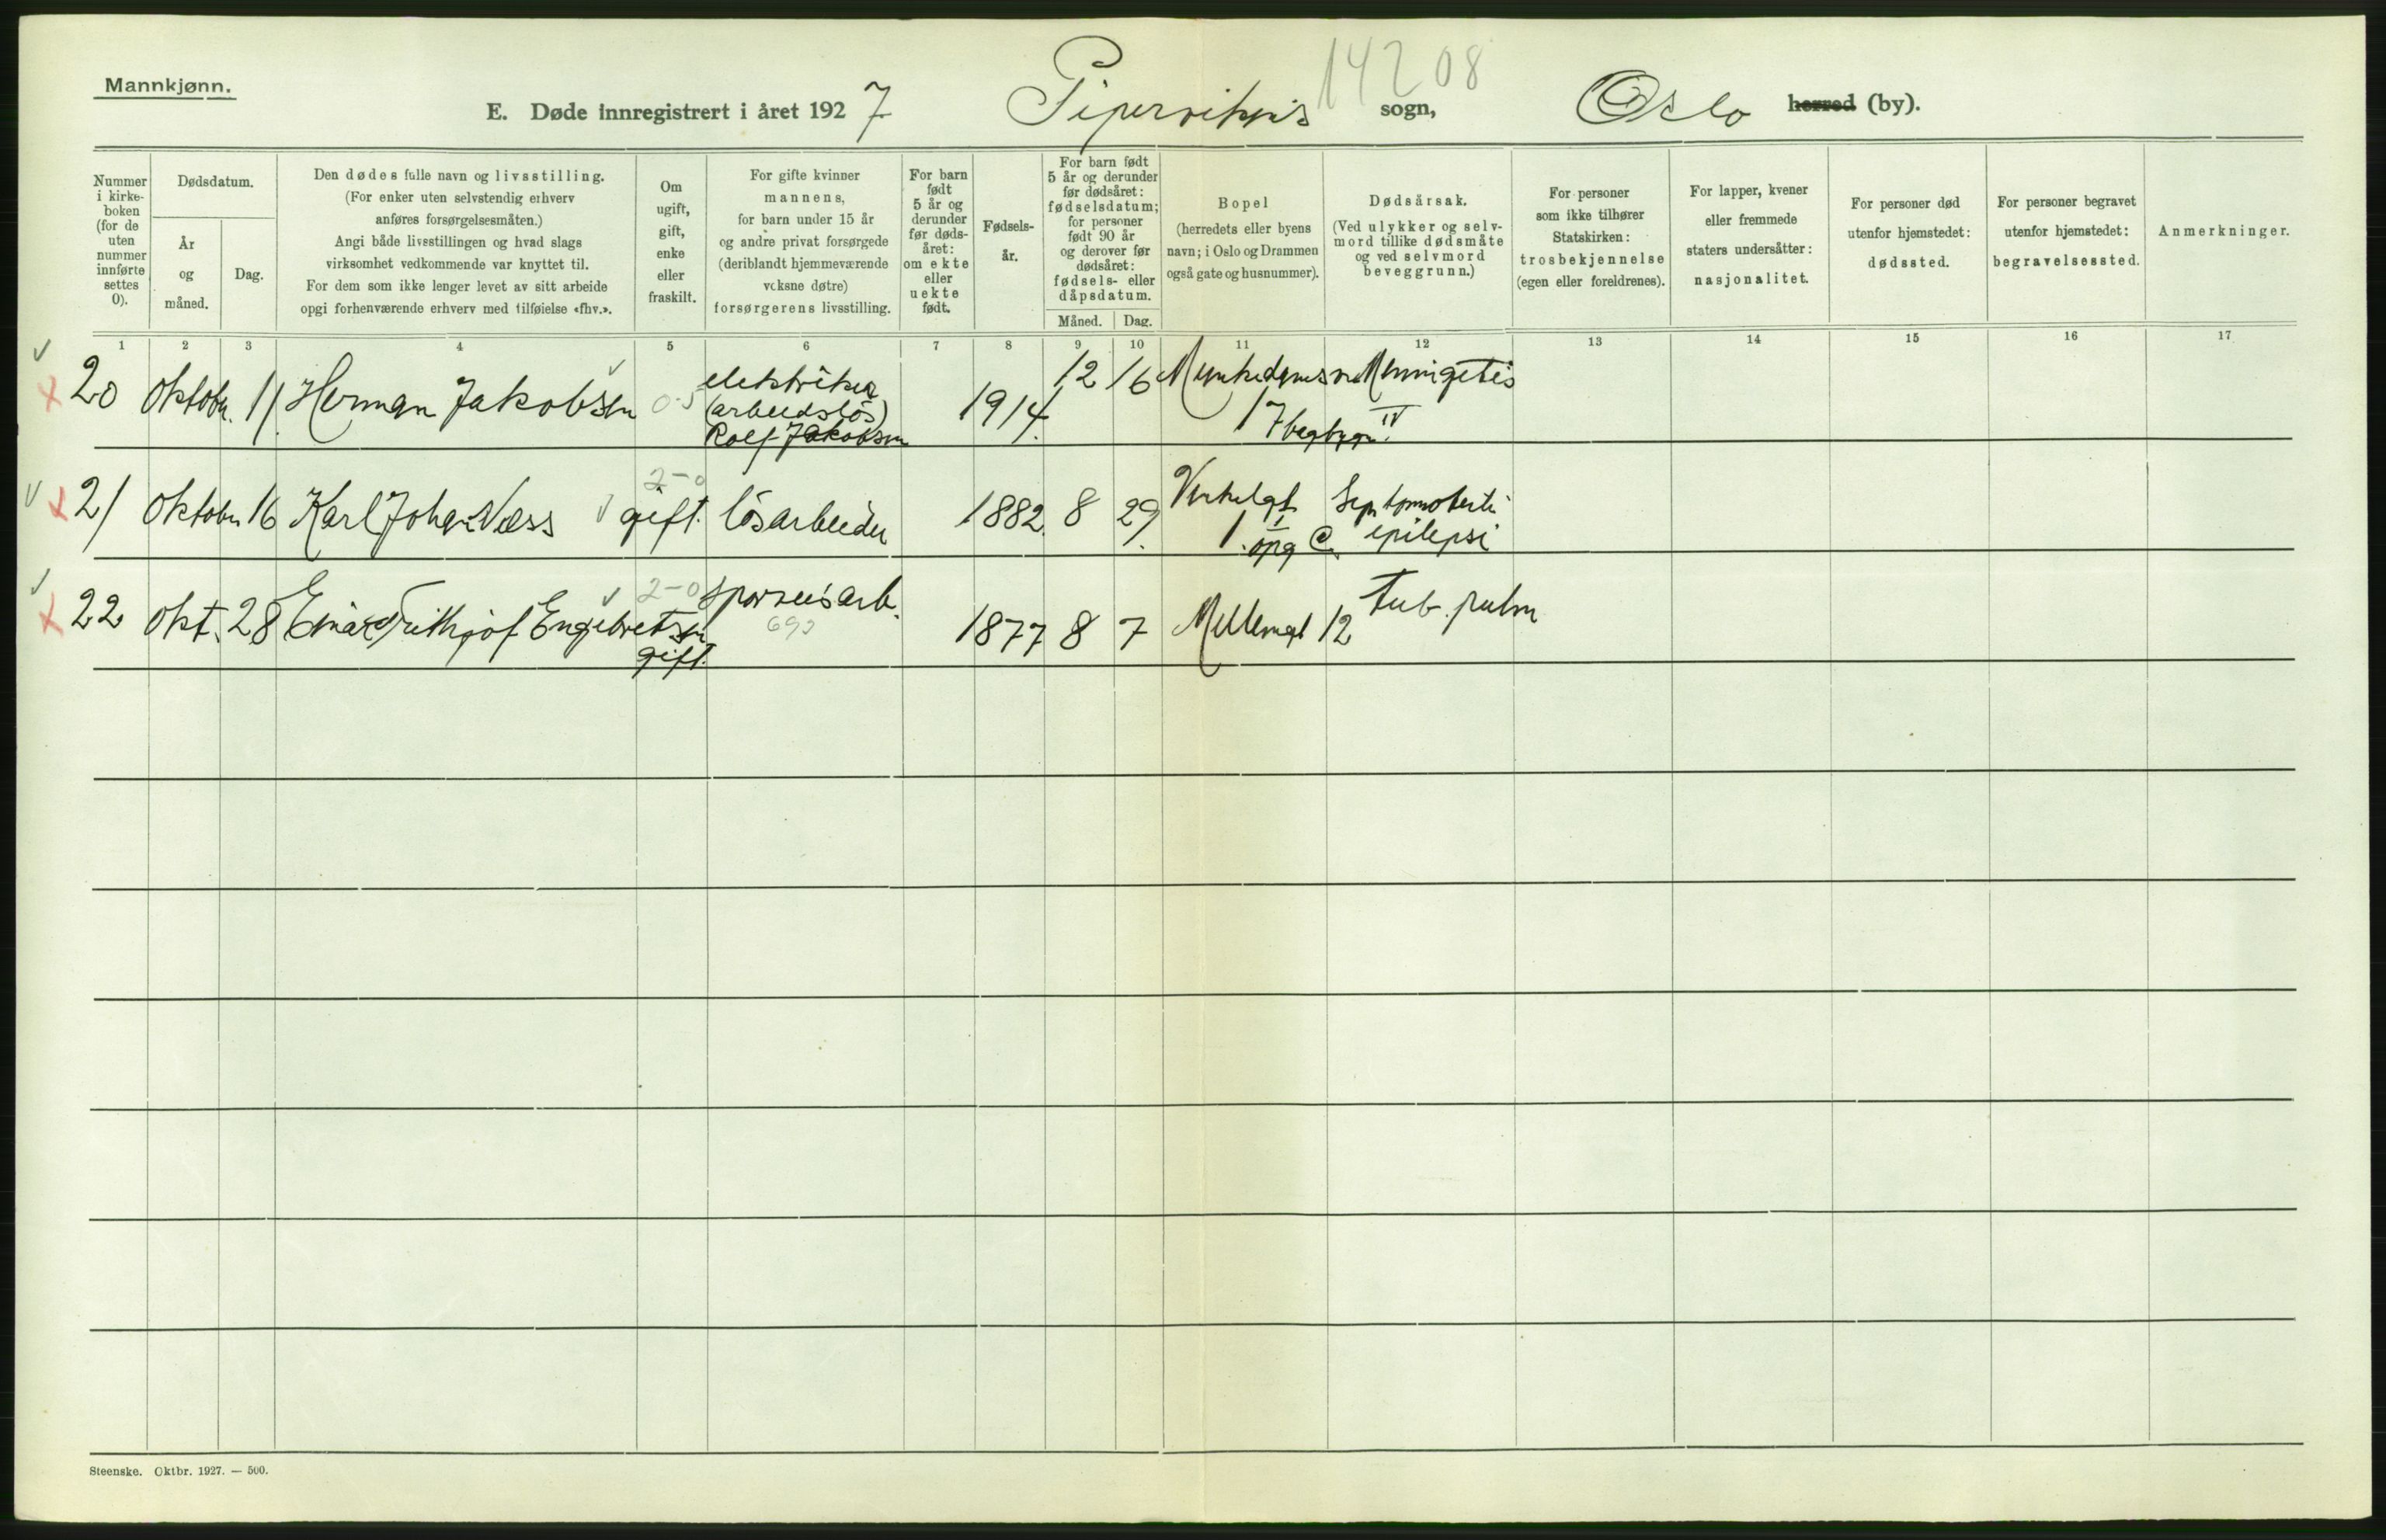 Mannkjønn.
14208
E. Døde innregistrert i året 1927 Pipervikens sogn, Oslo herred (by).
Nummer i kirkeboken (for de uten nummer innførte settes 0).
Dødsdatum.
År og måned.
Dag.
Den dødes fulle navn og livsstilling.
(For enker uten selvstendig erhverv
anføres forsørgelsesmåten.)
Angi både livsstillingen og hvad slags
virksomhet vedkommende var knyttet til.
For dem som ikke lenger levet av sitt arbeide
opgi forhenværende erhverv med tilføielse «fhv.».
Om
ugift,
gift,
enke
eller
fraskilt.
For gifte kvinner
mannens,
for barn under 15 år
og andre privat forsørgede
(deriblandt hjemmeværende
voksne døtre)
forsørgerens livsstilling.
For barn
født
5 år og
derunder
før døds-
året:
om ekte
eller
uekte
født.
Fødsels-
år.
For barn født
5 år og derunder
før dødsåret:
fødselsdatum;
for personer
født 90 år
og derover før
dødsåret:
fødsels- eller
dåpsdatum.
Måned. Dag.
Bopel
(herredets eller byens
navn; i Oslo og Drammen
også gate og husnummer).
Dødsårsak.
(Ved ulykker og selv-
mord tillike dødsmåte
og ved selvmord
beveggrunn.)
For personer
som ikke tilhører
Statskirken:
trosbekjennelse
(egen eller foreldrenes).
For lapper, kvener
eller fremmede
staters undersåtter:
nasjonalitet.
For personer død
utenfor hjemstedet:
dødssted.
For personer begravet
utenfor hjemstedet:
begravelsessted.
Anmerkninger.
1 2 3 4 5 6 7 8 9 10 11 12 13 14 15 16 17
20 Oktobr. 11 Herman Jakobsen 0-5 elektriker (arbeidsløs) Rolf Jakobsen 1914. 12 16 Munkedamsv Meningitis
17 bagbygn IV.
21 Oktobr 16 Karl Johan Næss 2-0 gift. løsarbeider 1882. 8 29.
1. opg C. epilepsi
22 Okt. 28 Einar Frithjof Engebretsen gift. 2-0 sporveisarb. 1877 8 7 Mellemgt 12 Tub. pulm
Steenske. Oktbr. 1927. — 500.